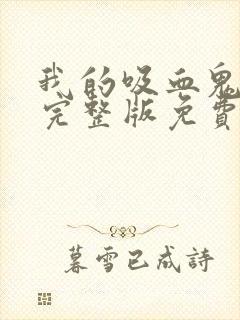 我的吸血鬼
完整版免费
暮雪已成詩